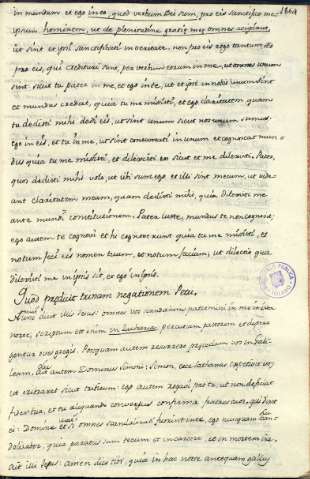 in mundum et ego inea, quod verbum Dei sum, pro eis sanctifico me
ipsum hominem, ut de plenitudine gratiæ meæ omnes accipiant,
ut sint et ipsi sanctificati in veritate. non pro eis rogo tantum sed
pro eis, qui credituri sunt per verbum eorum in me, ut omnes unum
sint sicut tu pater in me, et ego in te, ut et ipsi in nobis unum sint
et mundus credat, quia tu me misisti, et ego claritatem quam
tu dedisti mihi dedi eis, ut sint unum sicut nos unum sumus.
ego in eis, et tu in me, ut sint consummati in unum et cognoscat mun
dus quia tu me misisti, et dilexisti eos sicut et me dilexisti. Pater,
quos dedisti mihi volo, ut ubi sum ego et illi sint mecum, ut vide
ant claritatem meam, quam dedisti mihi, quia dilexisti me
ante mundi constitutionem. Pater iuste, mundus te non cognovit,
ego autem te cognovi et hi cognoverunt quia tu me misisti, et
notum feci eis nomen tuum, et notum faciam, ut dilectio qua
dilexisti me in ipsis sit, et ego in ipsis.
Quod prædixit trinam negationem Petri.
Tunc dixit illi Iesus: omnes vos scandalum patiemini in me in ista
nocte, scriptum est enim in Zacharia percutiam pastorem et disper
gentur oves gregis. Postquam autem resurrexero præcedam vos in Gali
leam. Ait autem Dominus Simoni: Simon, ecce Sathanas expetivit vos
ut cribraret sicut triticum: ego autem rogavi pro te, ut non deficiat
fides tua, et tu aliquando conversus confirma fratres tuos. qui dixit
ei: Domine et si omnes scandalizati fuerint in te, ego nunquam
quia paratus sum tecum et in carcerem et in mortem ire.
ait illi Iesus: amen dico tibi, quia in hac nocte antequam gallus